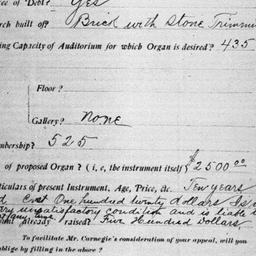 ee of Debt? Yes
rch built of? Brick with Stone Trimmin
ing Capacity of Auditorium for which Organ is desired? 435
Floor?
Gallery? None
mbership? 525
of proposed Organ? (i, e, the instrument itself) $2500.00
ticulars of present Instrument, Age, Price, etc. Ten years
d Cost One hundred twenty dollars Is
ery unsatisfactory condition and is liable t
any time
already raised? Five Hundred Dollars.
To facilitate Mr. Carnegie's consideration of your appeal, will you
oblige by filling in the above?